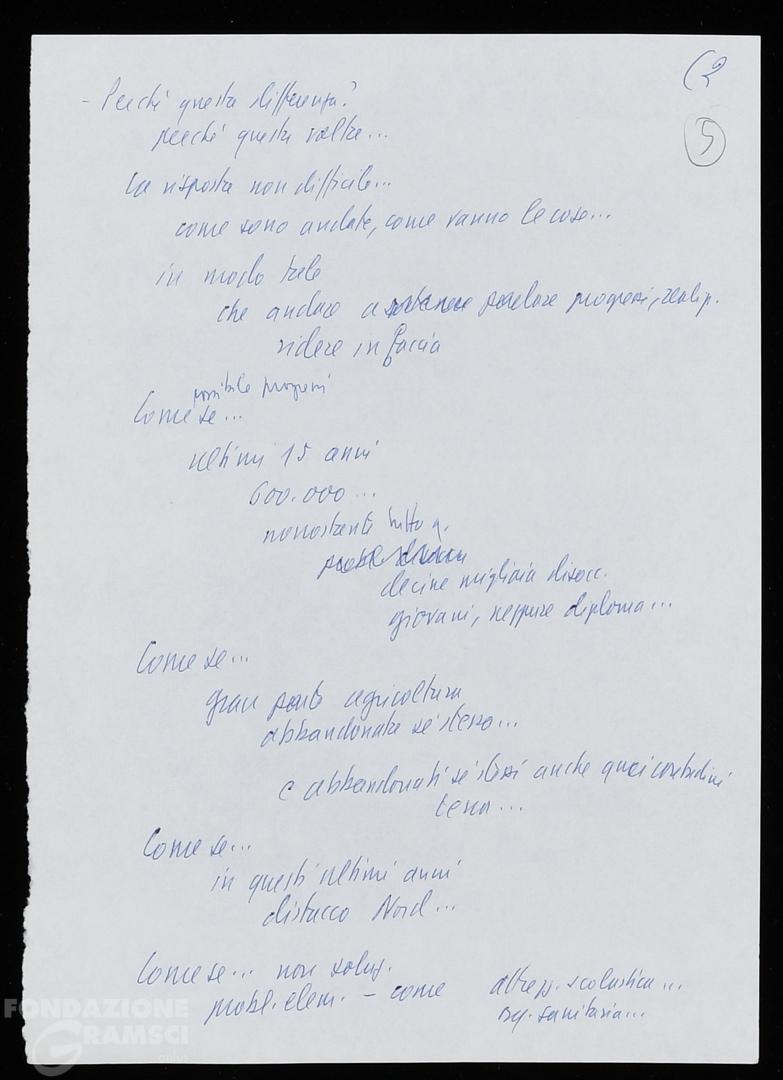 (2
5
- Perché questa differenza?
perché questa volta...
La risposta non difficile...
come sono andate, come vanno le cose...
in modo tale
che andare a parlare progressi, realizz.
ridere in faccia
possibile progressi
Come se...
ultimi 15 anni
600.000...
nonostante tutto q.
decine migliaia disocc.
giovani, neppure diploma...
Come se...
gran parte agricoltura
abbandonata sé stessa...
e abbandonati sé stessi anche quei contadini
terra...
Come se...
in questi ultimi anni
distacco Nord...
Come se... non soluz.
probl. elem. - come attrezz. scolastica...
org. sanitaria...
FONDAZIONE
GRAMSCI